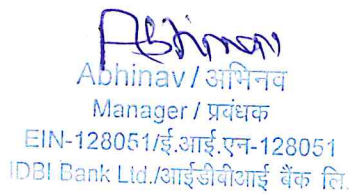 Abhinav
Abhinav / अभिनव
Manager / प्रवंधक
EIN-128051/ई.आई.एन-128051
IDBI Bank Ltd./आईडीबीआई बैंक लि.